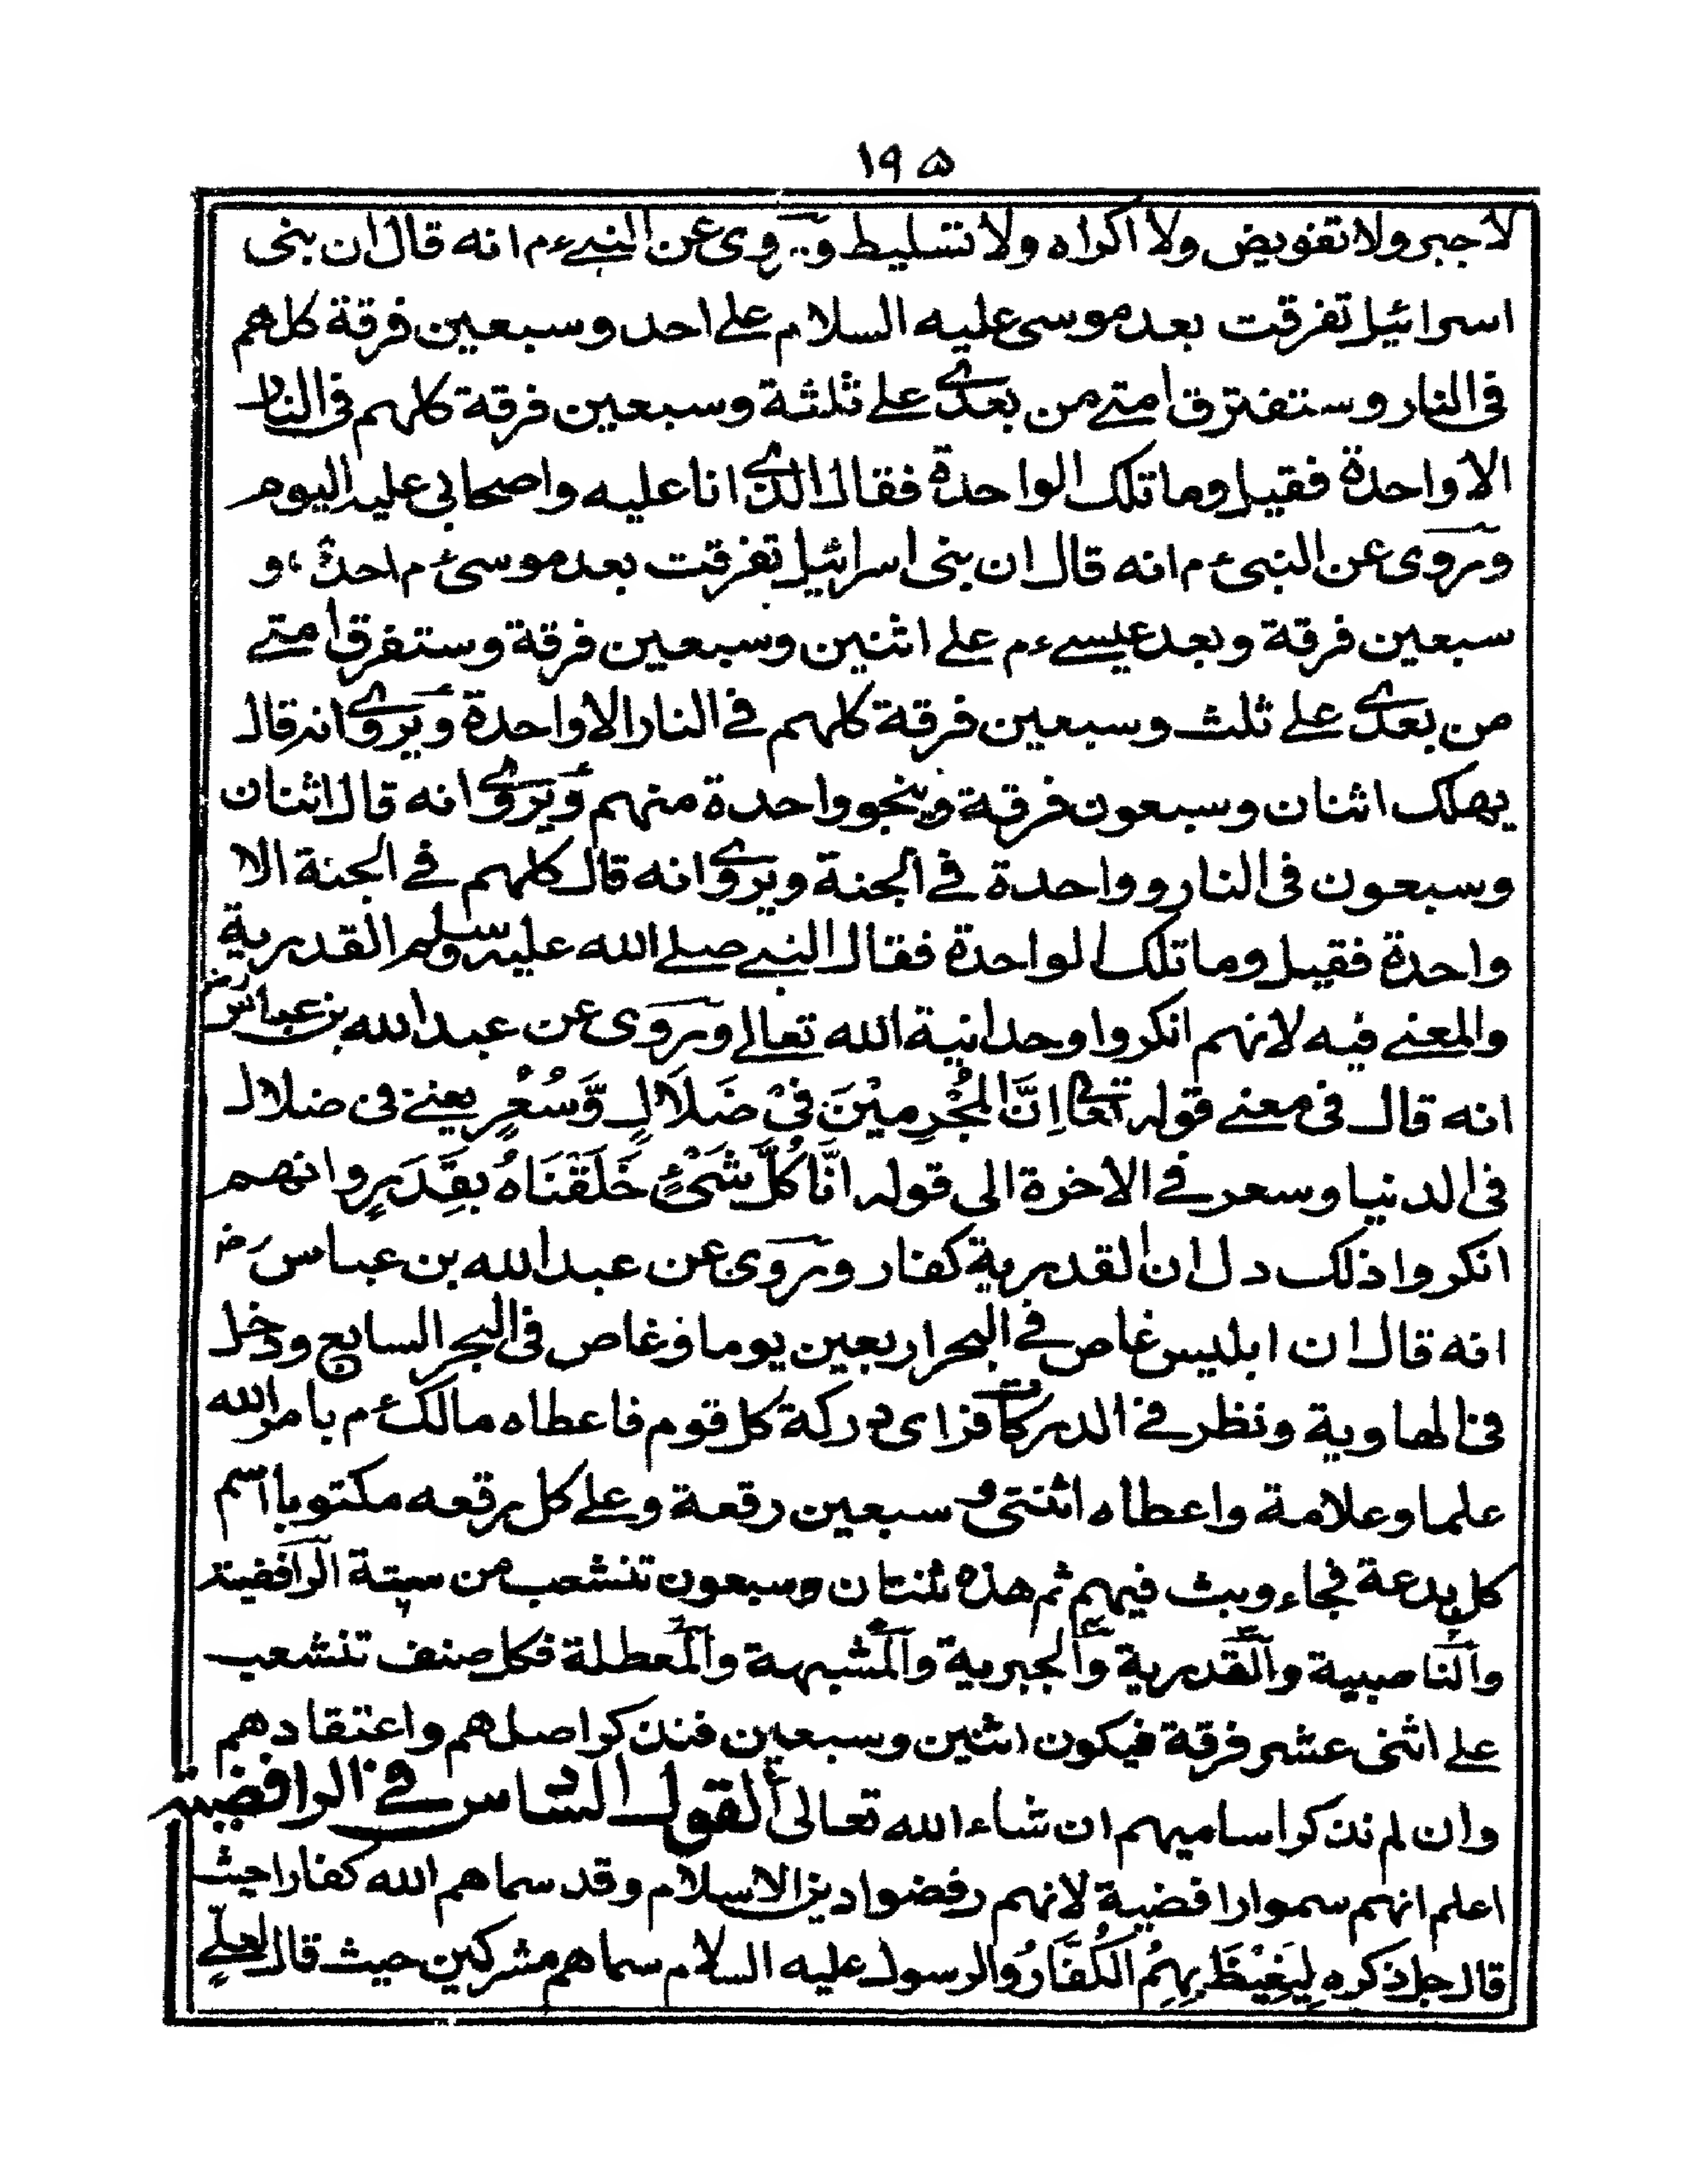 ١٩٥
لا جبر ولا تفويض ولا اكراه ولا تسليط ويروى عن النبىءم انه قال ان بنى
اسرائيل تفرقت بعد موسى عليه السلام على احد وسبعين فرقة كلهم
فى النار وستفترق امتى من بعدى على ثلثة وسبعين فرقة كلهم فى النار
الا واحدة فقيل وما تلك الواحدة فقال الذى انا عليه واصحابى عليه اليوم
ويروى عن النبىءم انه قال ان بنى اسرائيل تفرقت بعد موسىءم احدى و
سبعين فرقة وبعد عيسىءم على اثنين وسبعين فرقة وستفرق امتى
من بعدى على ثلث وسبعين فرقة كلهم فى النار الا واحدة ويروى انه قال
يهلك اثنان وسبعون فرقة وينجو واحدة منهم ويروى انه قال اثنان
وسبعون فى النار وواحدة فى الجنة ويروى انه قال كلهم فى الجنة الا
واحدة فقيل وما تلك الواحدة فقال النبى صلى الله عليه وسلم القدرية
والمعنى فيه لانهم انكروا وحدانية الله تعالى ويروى عن عبد الله بن عباس رض
انه قال فى معنى قوله تعا اِنَّ الْمُجْرِمِيْنَ فِىْ ضَلَالٍ وَّسُعُرٍ يعنى فى ضلال
فى الدنيا وسعر فى الاخرة الى قوله انَّا كُلَّ شَىْءٍ خَلَقْنَاهُ بِقَدَرٍ وانهم
انكروا ذلك دل ان القدرية كفار ويروى عن عبد الله بن عباس رض
انه قال ان ابليس غاص فى البحر اربعين يوما وغاص فى البحر السابع ودخل
فى الهاوية ونظر فى الدركات فراى دركة كل قوم فاعطاه مالكءم بامر الله
علما وعلامة واعطاه اثنتى و سبعين رقعة وعلى كل رقعه مكتوبا اسم
كل بدعة فجاء وبث فيهم ثم هذه ثنتان وسبعون تنشعب من ستة الرافضية
والناصبية والقدرية والجبرية والمشبهة والمعطلة فكل صنف تنشعب
على اثنى عشر فرقة فيكون اثنين وسبعين فنذكر اصلهم واعتقادهم
وان لم نذكر اساميهم ان شاء الله تعالى القول السادس فى الرافضية
اعلم انهم سموا رافضية لانهم رفضوا دين الاسلام وقد سماهم الله كفارا حيث
قال جل ذكره لِيَغِيْظَ بِهِمُ الْكُفَّارُ والرسول عليه السلام سماهم مشركين حيث قال لعلىٍّ